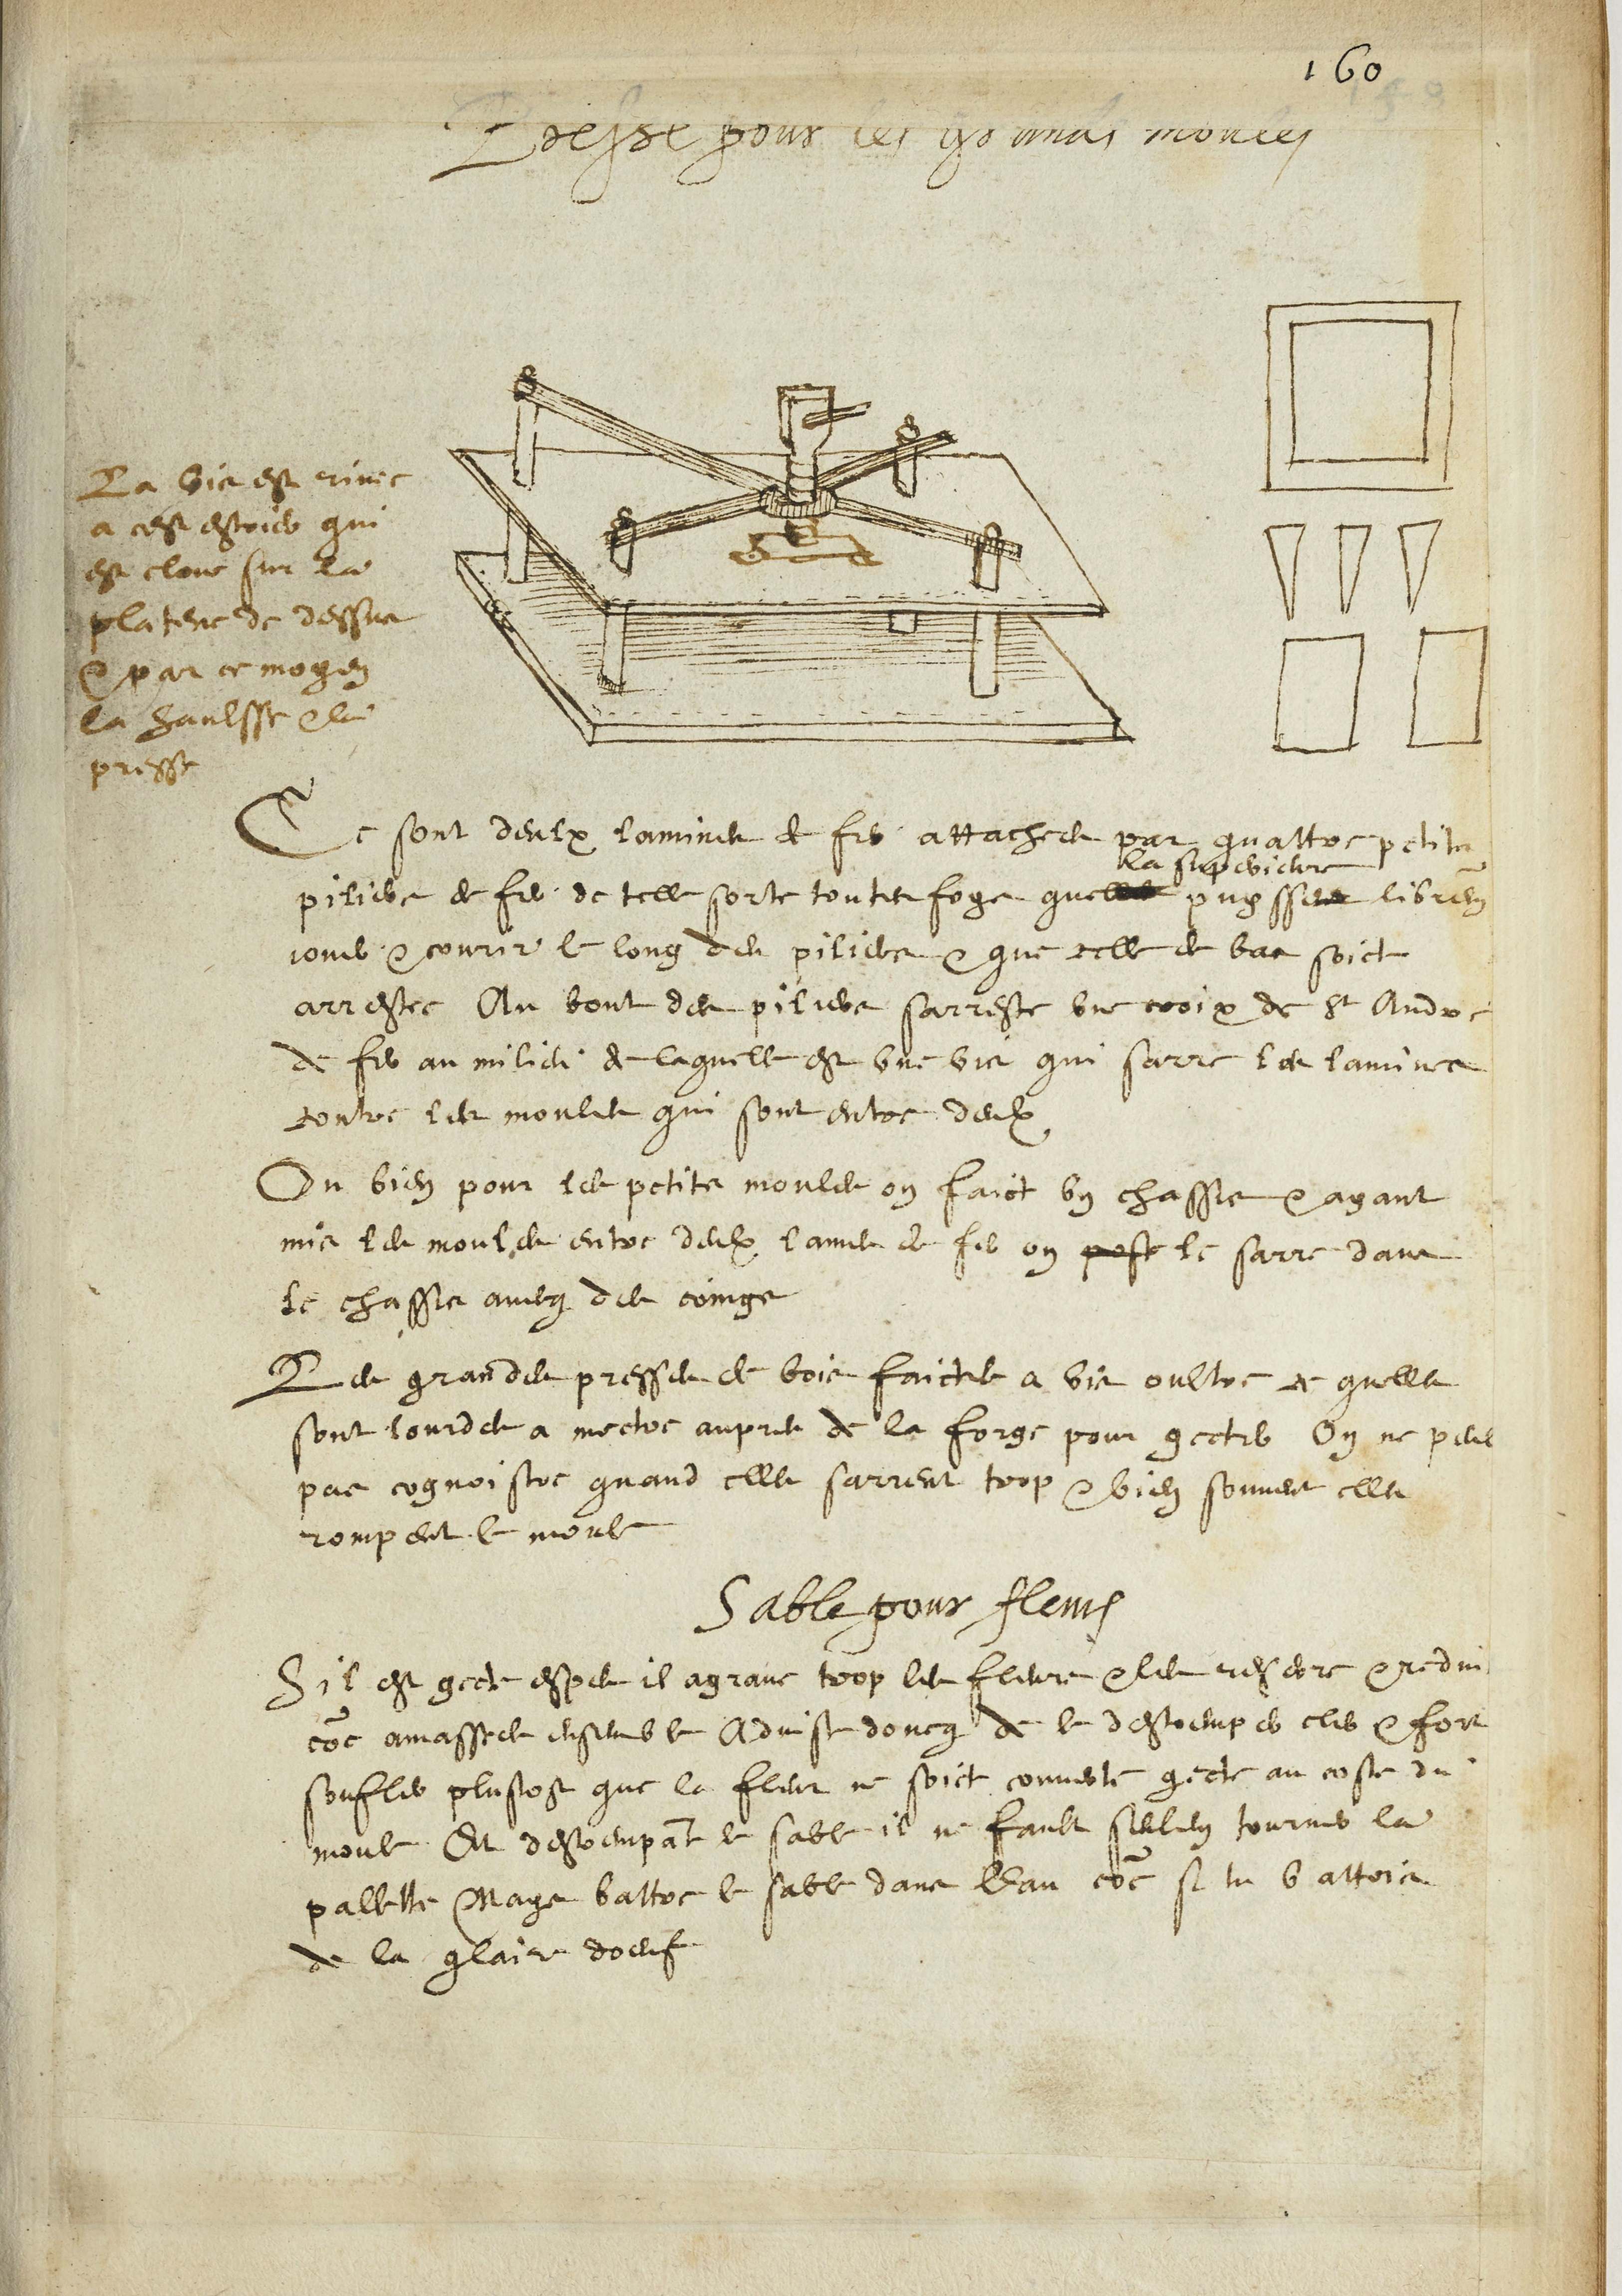 160
Presse pour les grands moules
La vis est rivee
a cest estrier qui
est cloue sur la
platene de dessus
& par ce moyen
la haulsse & la
presse
Ce sont deulx lamines de fer attachees par quattre petits
la superieure
piliers de fer de telle sorte toutesfoys que puysse librem{ent}
jouer & courir le long des piliers & que celle de bas soict
arrestee Au bout des piliers sarreste une croix de St Andre
de fer au milieu de laquelle est une vis qui sarre les lamines
contre les moules qui sont entre deux
Ou bien pour les petits moules on faict un chassis & ayant
mis les moules entre deulx lames de fer on poste le sarre dans
le chassis avecq des coings
Les grandes presses de bois faictes a vis oultre ce quelles
sont lourdes a mectre aupres de la forge pour gecter On ne peult
pas cognoistre quand elles sarrent trop & bien souvent elles
rompent le moule
Sable pour fleurs
Sil est gecte espes il agrave trop les fleurs & les & redui
co{mm}e amassees ensemble Advise doncq de le destremper cler & fort
soufler plustost que la fleur ne soict couverte gecte au coste du
moule Et destrempa{n}t le sable il ne fault seulem{ent} tourner la
pallette Mays battre le sable dans leau co{mm}e si tu battois
de la glaire doeuf